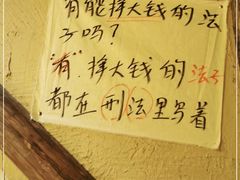 有能挣大钱的法
子吗?
"有"挣大钱的法子
都在刑法里写着